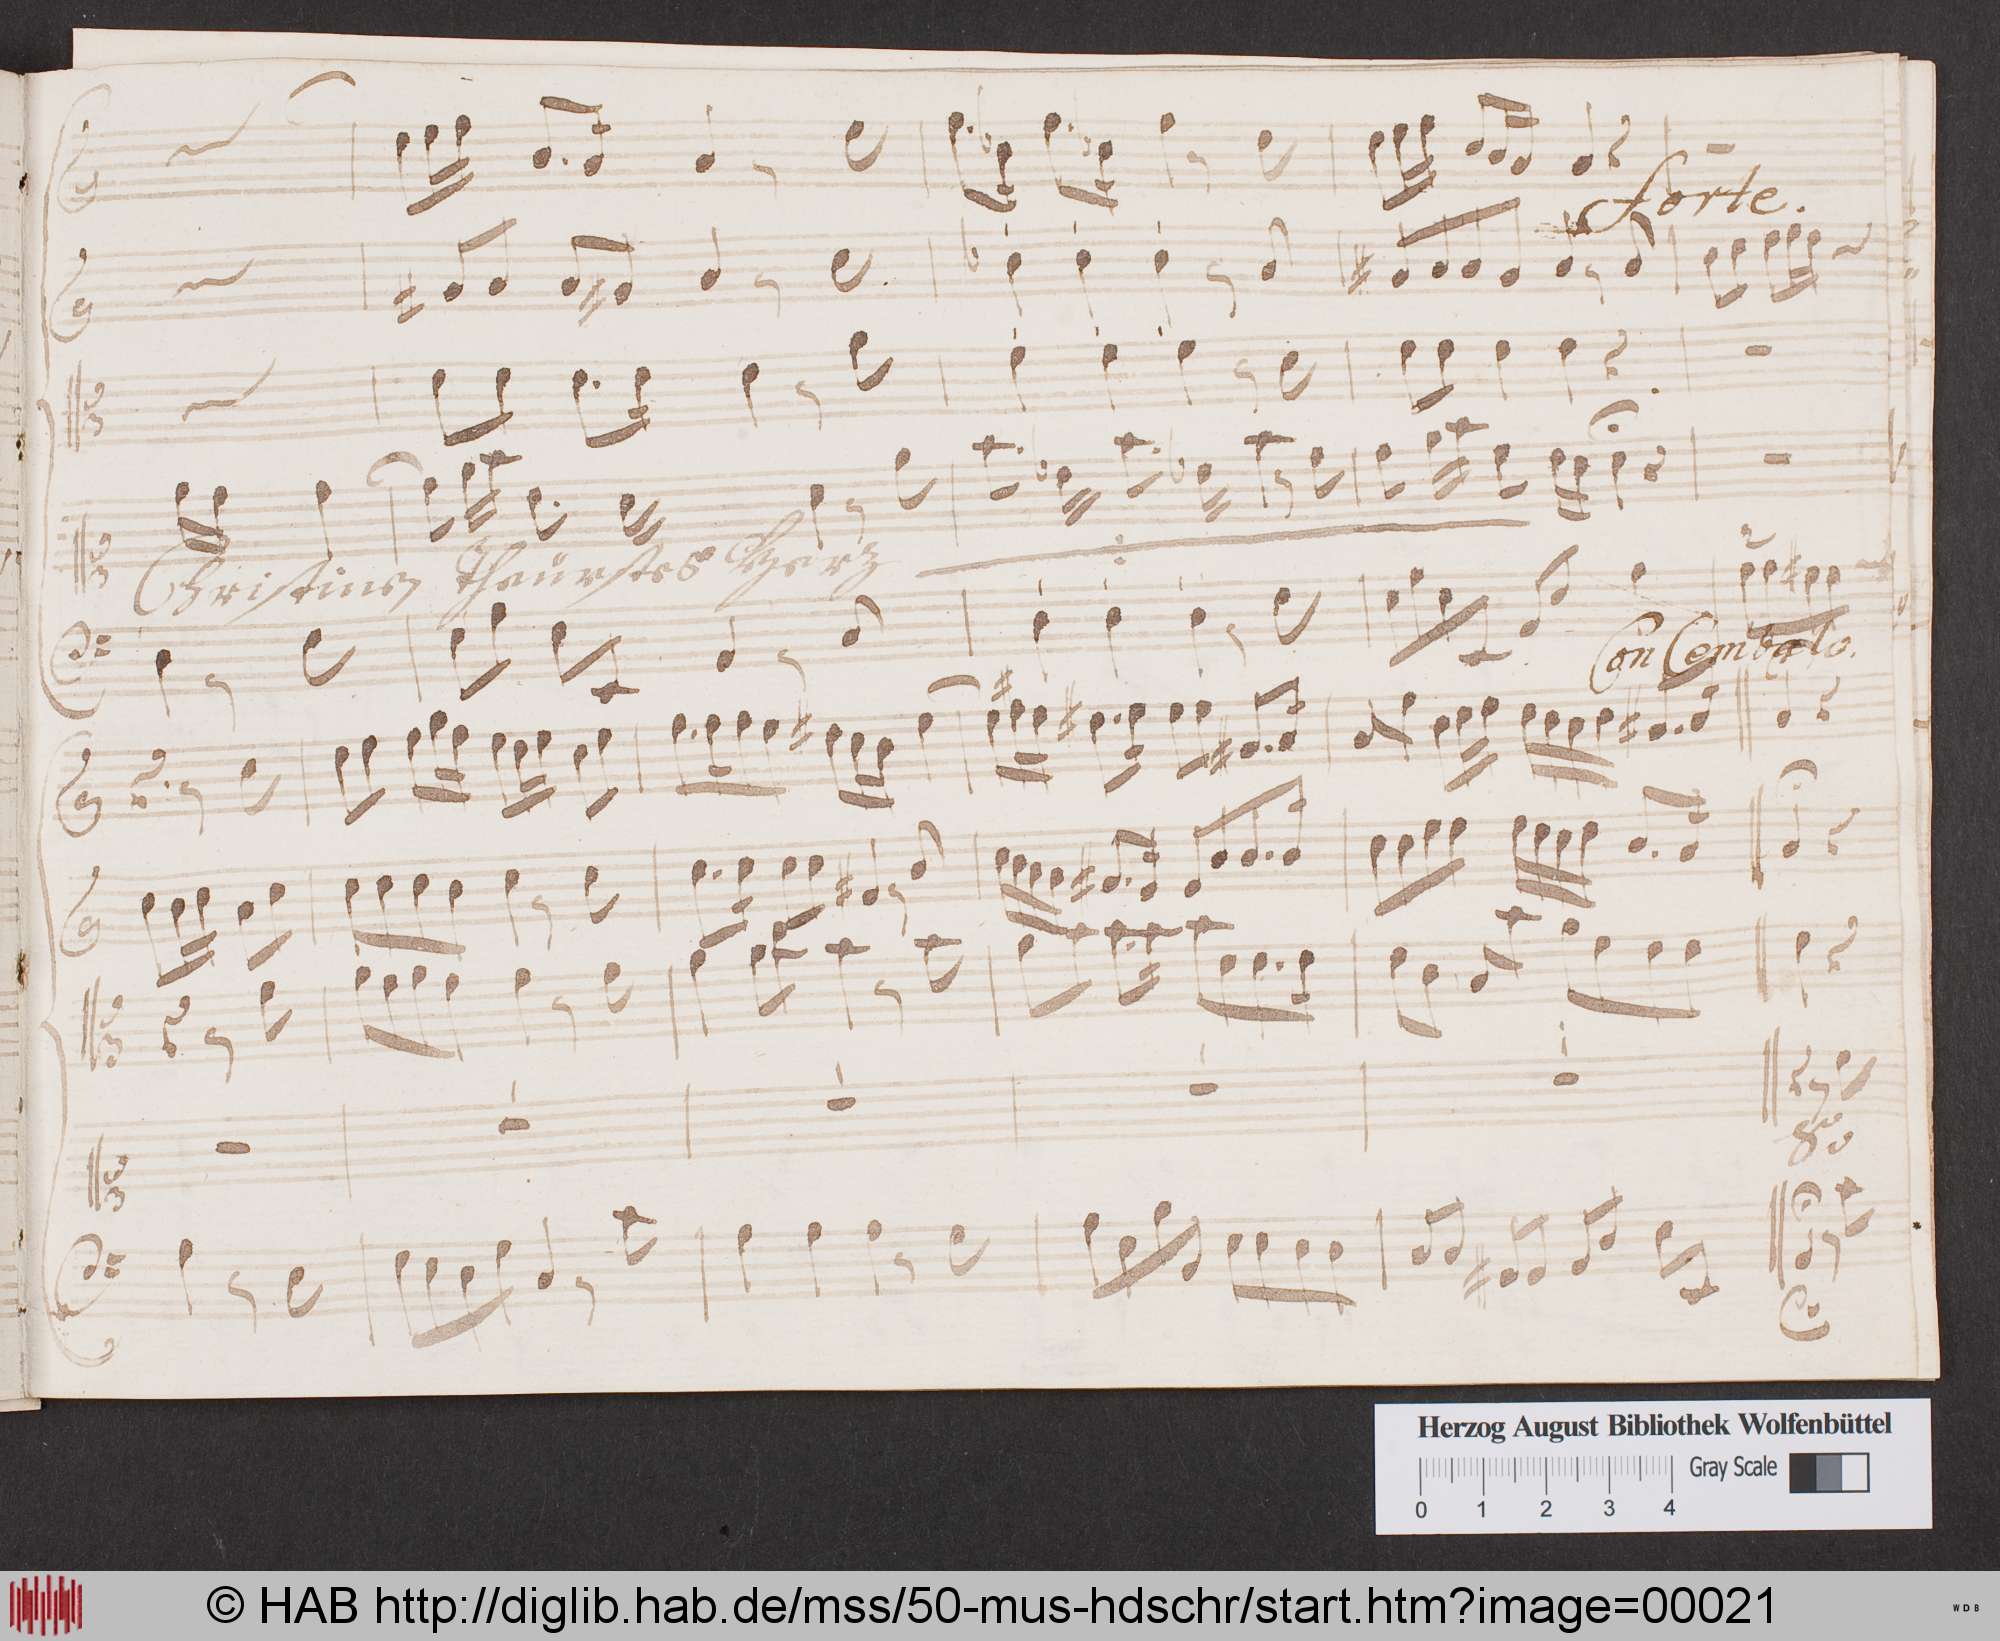 forte.
Christinen Theürstes Herz
Con Cembalo.
Herzog August Bibliothek Wolfenbüttel
Gray Scale
0 1 2 3 4
© HAB http://diglib.hab.de/mss/50-mus-hdschr/start.htm?image=00021
WDB